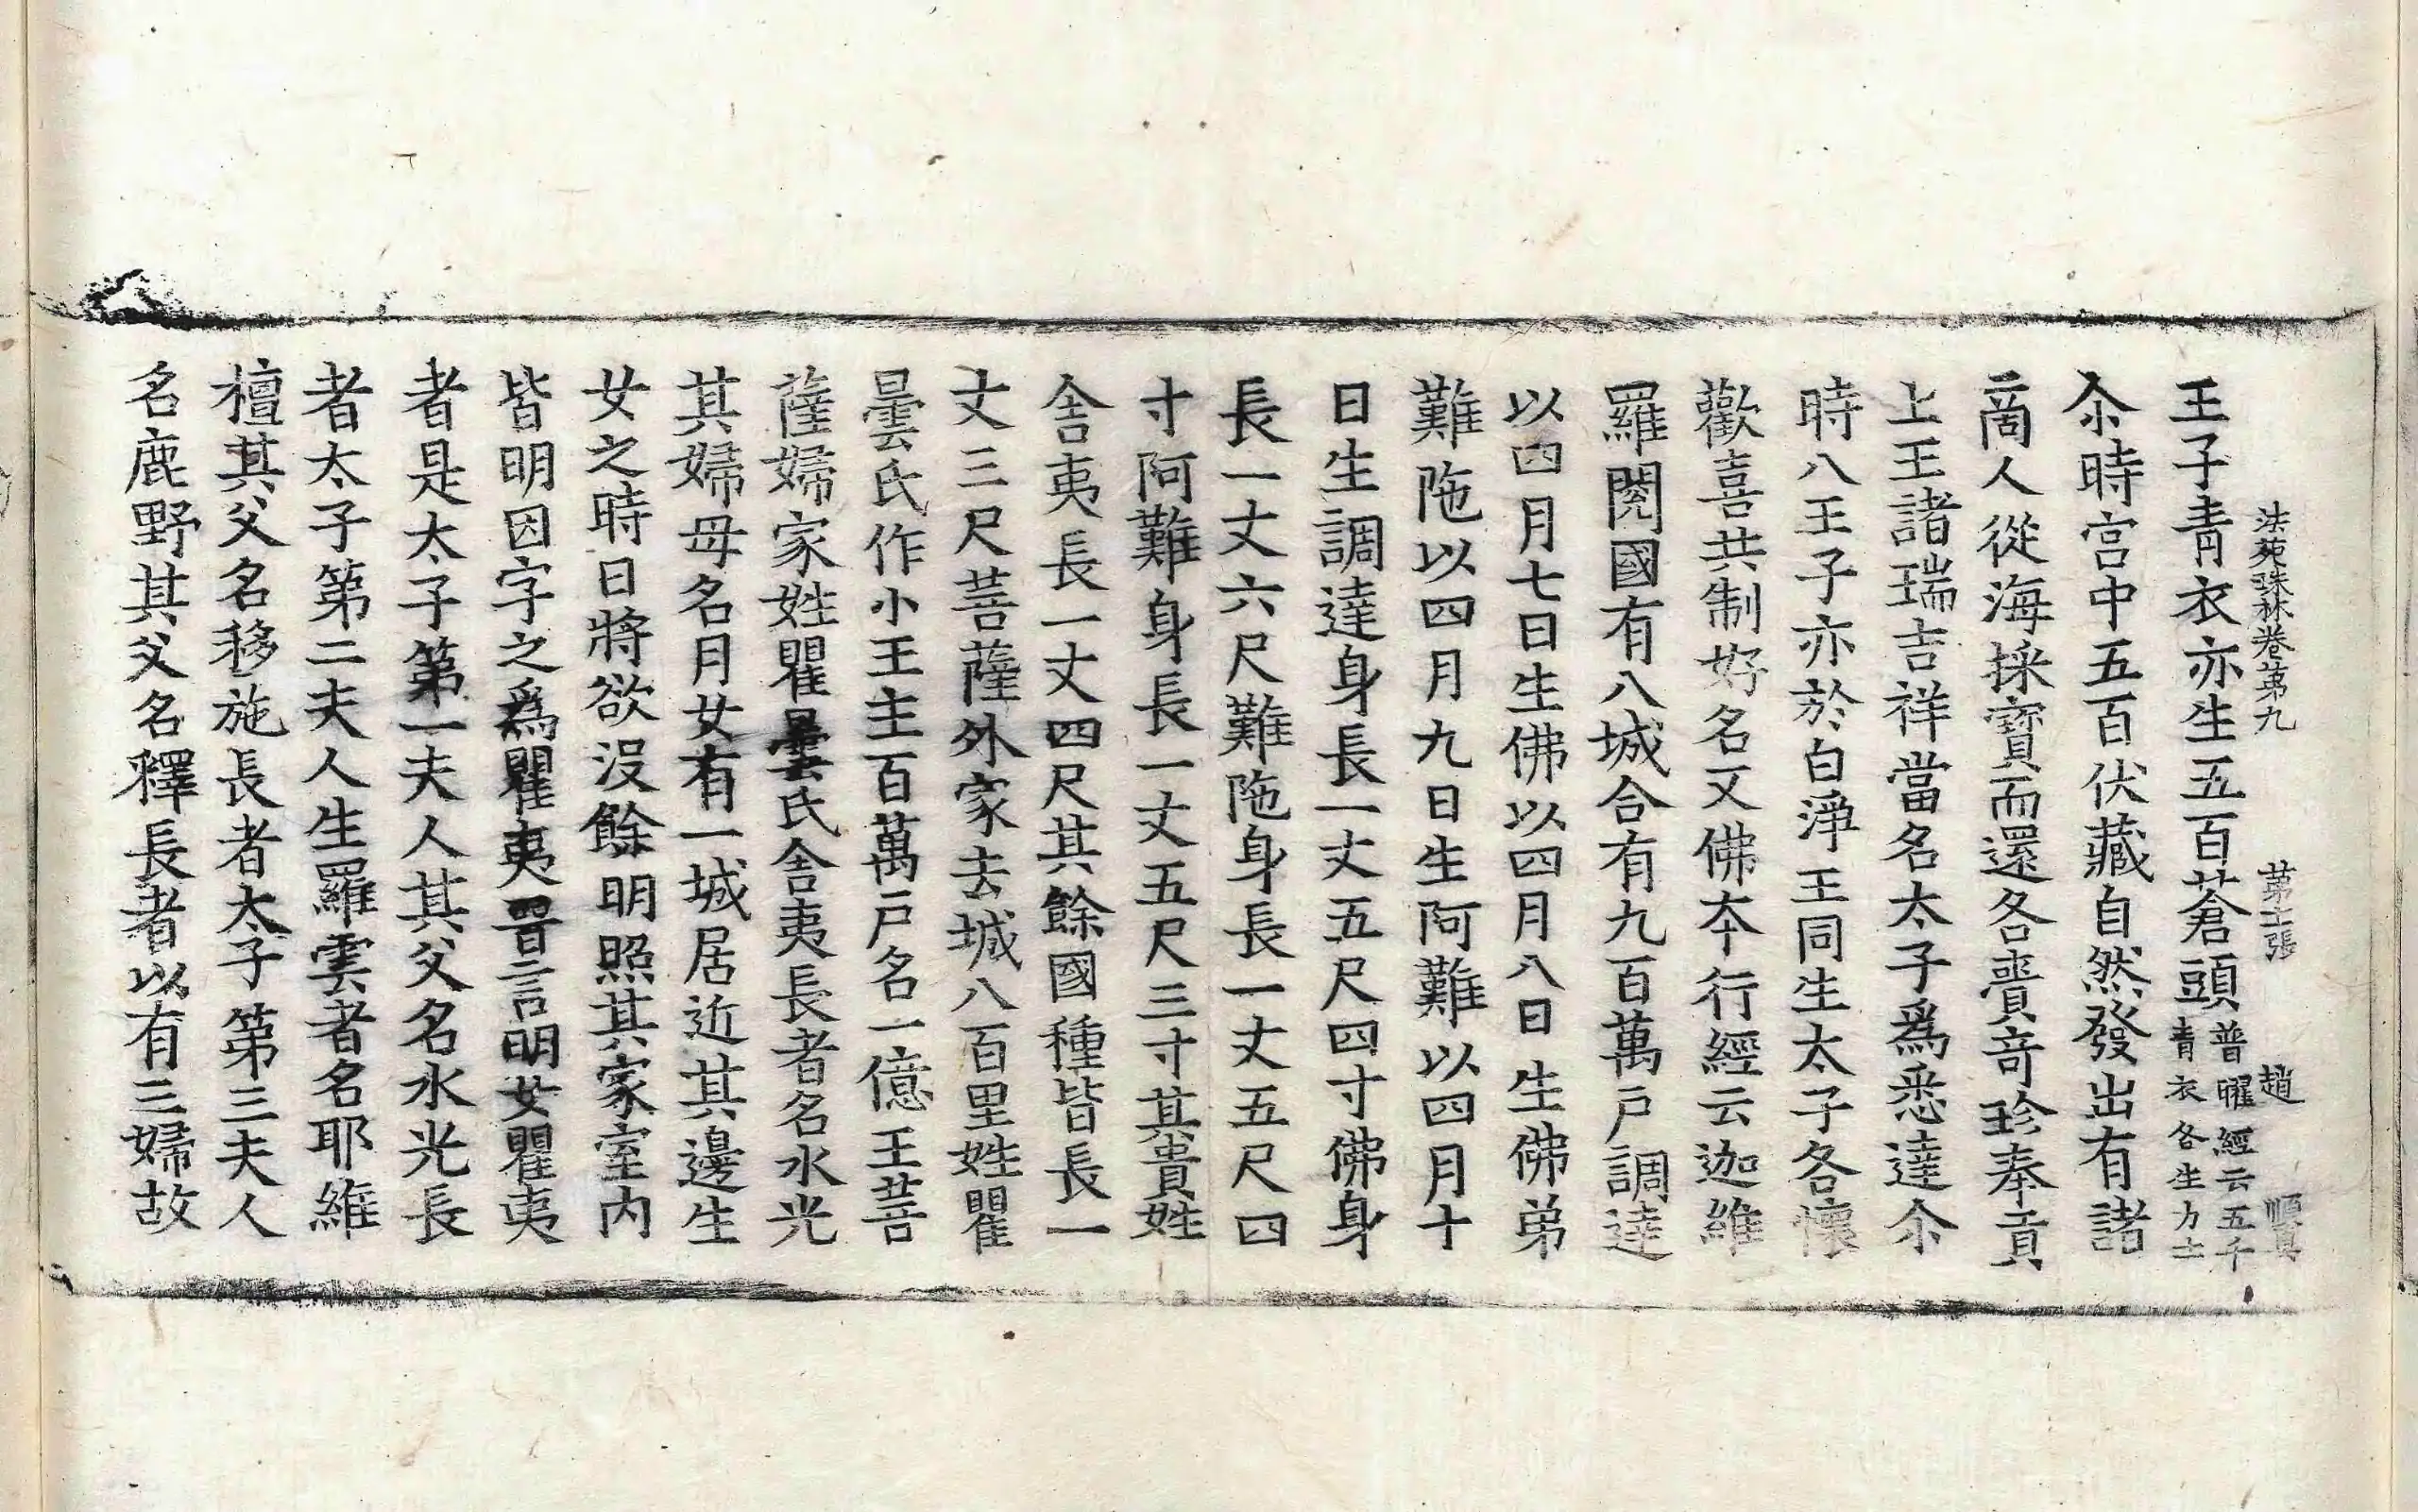 法苑珠林卷第九 第十二張 趙
王子青衣亦生五百蒼頭普曜經云五千青衣各生力士
尒時宮中五百伏藏自然發出有諸
商人從海採寶而還各賷竒珎奉貢
上王諸瑞吉祥當名太子爲悉達尒
時八王子亦於白淨王同生太子各懷
歡喜共制好名又佛本行經云迦維
羅閱國有八城合有九百萬戶調達
以四月七日生佛以四月八日生佛弟
難陁以四月九日生阿難以四月十
日生調達身長一丈五尺四寸佛身
長一丈六尺難陁身長一丈五尺四
寸阿難身長一丈五尺三寸其貴姓
舍夷長一丈四尺其餘國種皆長一
丈三尺菩薩外家去城八百里姓瞿
曇氏作小王主百萬戶名一億王菩
薩婦家姓瞿曇氏舍夷長者名水光
其婦母名月女有一城居近其邊生
女之時日將欲沒餘明照其家室内
皆明因字之爲瞿夷晉言明女瞿夷
者是太子第一夫人其父名水光長
者太子第二夫人生羅雲者名耶維
檀其父名移施長者太子第三夫人
名鹿野其父名釋長者以有三婦故